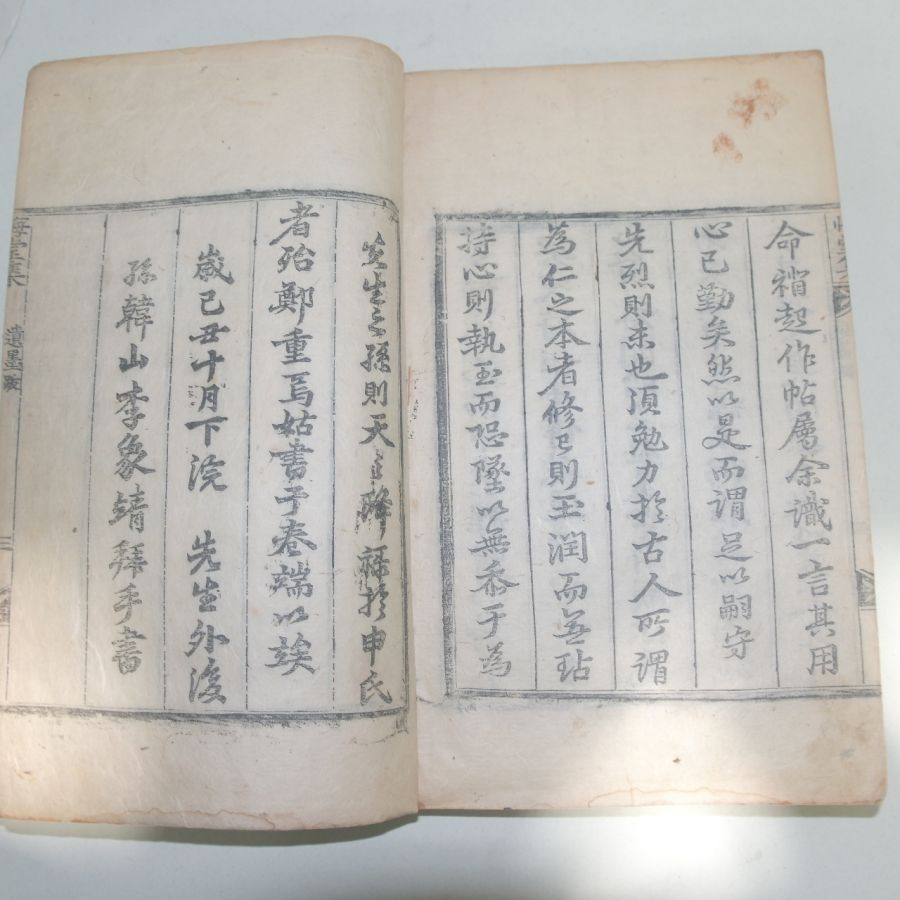 命褙起作帖屬余識一言其用
心已勤矣然以是而謂足以嗣守
先烈則未也須勉力於古人所謂
為仁之本者修己則玉潤而無玷
持心則執玉而恐墜以無忝于為
先生之孫則天之降福於申氏
者殆鄭重焉姑書于卷端以竢
歲己丑十月下浣 先生外後
孫韓山李象靖拜手書
遺墨跋